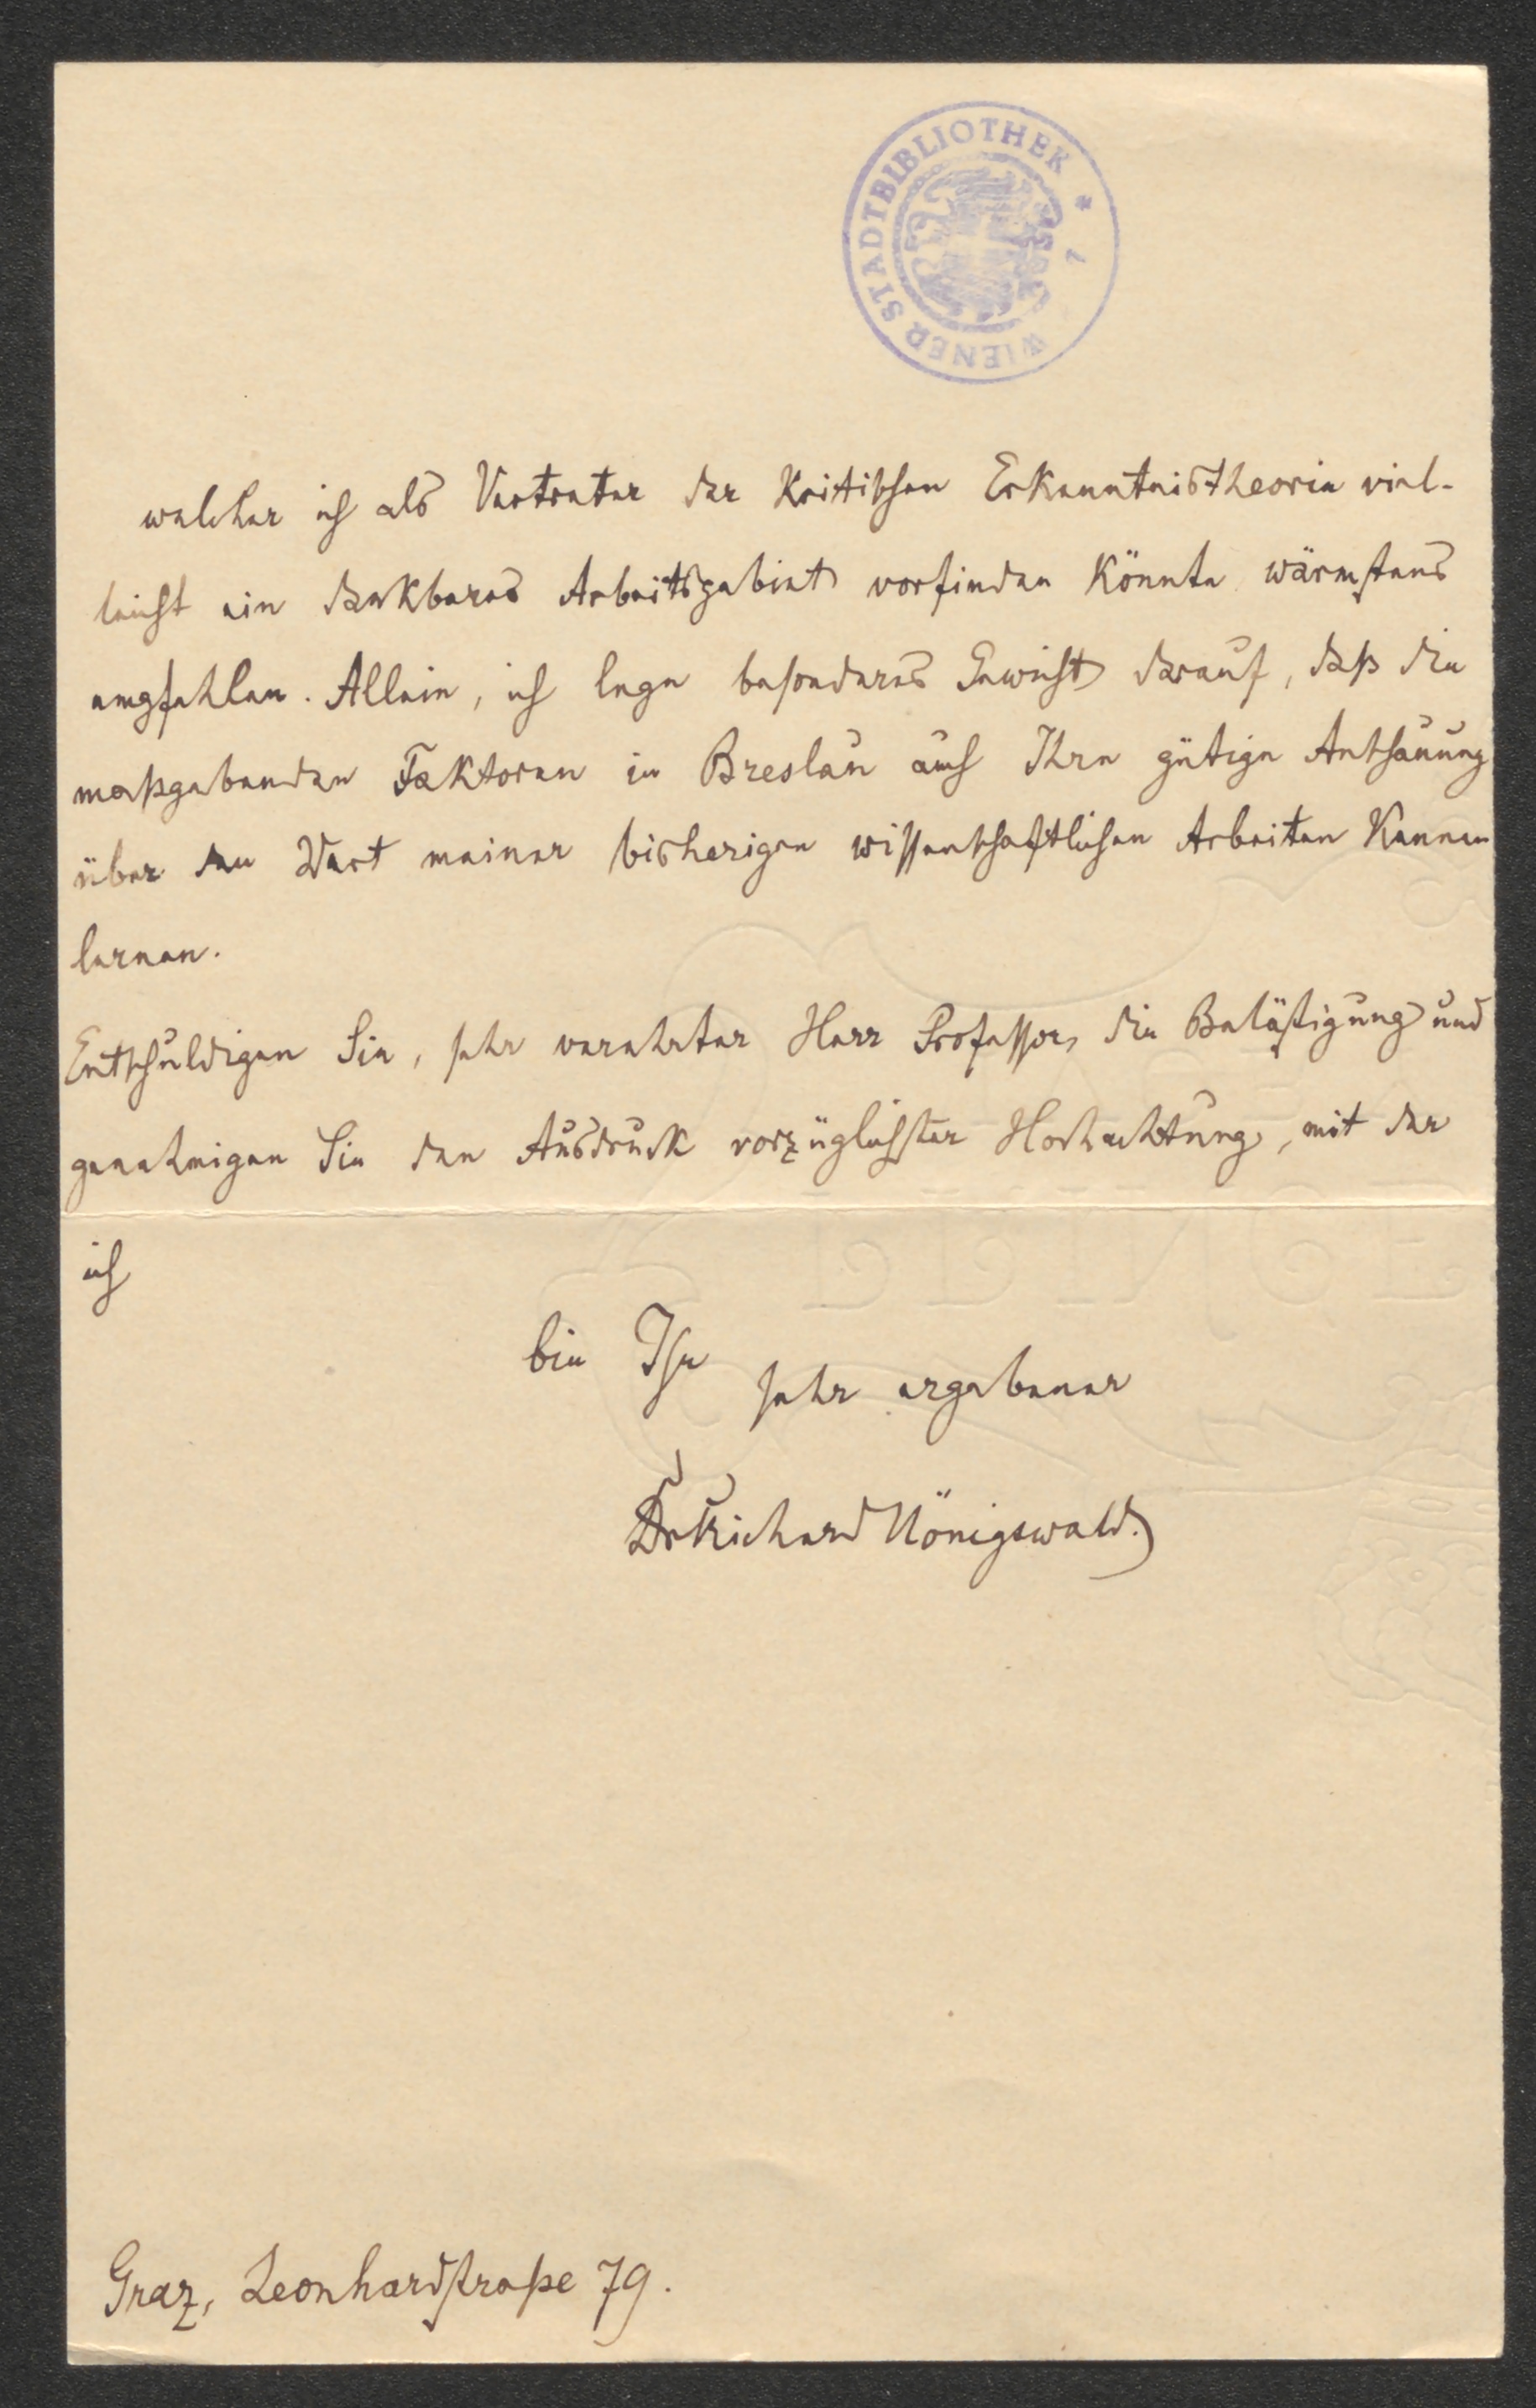 WIENER STADTBIBLIOTHEK * 1
welcher ich als Vertreter der kritischen Erkenntnistheorie viel-
leicht ein dankbares Arbeitsgebiet vorfinden könnte wärmstens
empfehlen. Allein, ich lege besonderes Gewicht darauf, daß die
maßgebenden Faktoren in Breslau auch Ihre gütige Anschauung
über den Wert meiner bisherigen wissenschaftlichen Arbeiten kennen
lernen.
Entschuldigen Sie, sehr verehrter Herr Professor, die Belästigung und
genehmigen Sie den Ausdruck vorzüglichster Hochachtung, mit der
ich
bin Ihr
sehr ergebener
Dr Richard Hönigswald.
Graz, Leonhardstraße 79.